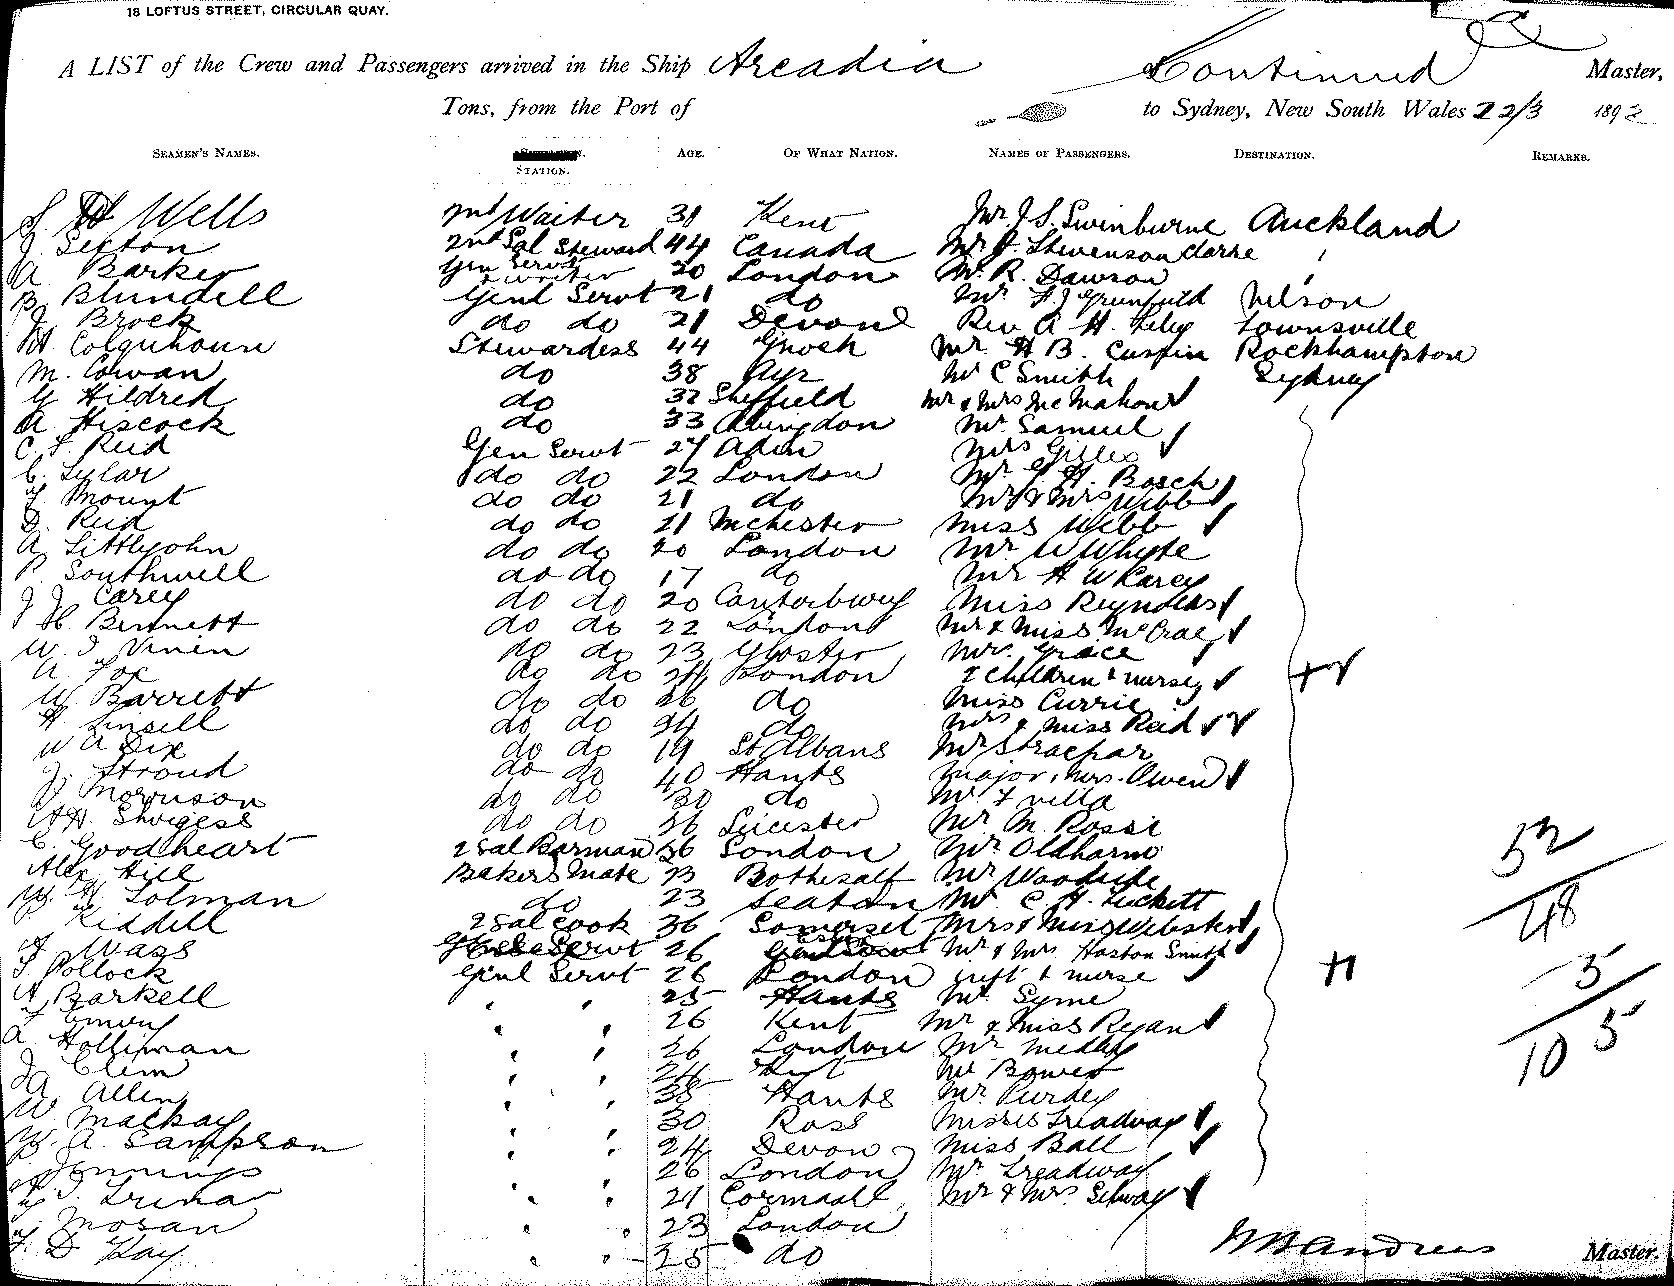 18 LOFTUS STREET, CIRCULAR QUAY.
A LIST of the Crew and Passengers arrived in the Ship Arcadia Continued Master,
Tons, from the Port of to Sydney, New South Wales 22/3 1892
SEAMEN'S NAMES. STATION. AGE. OF WHAT NATION. NAMES OF PASSENGERS. DESTINATION. REMARKS.
S. H Wells 2nd Waiter 31 Kent Mr J. S. Swinburne Auckland
J. Sexton 2nd Sal Steward 44 Canada Mr J. Stevenson Clarke
A Barker Gen Servt waiter 20 London Mr. R. Dawson
B. Blundell Genl Servt 21 do Mr H J Grunfeld Nelson
J. Brock do do 21 Devon Rev A H. Townsville
M. Colquhoun Stewardess 44 Mr. H B. Rockhampton
M. Cowan do 38 Ayr Mr C Smith Sydney
G Hildred do 32 Sheffield Mr & Mrs McMahon
A Hiscock do 33 Abingdon Mr. Samuel
C. F. Reid Gen Servt 27 Mrs Gilles
C. Sylar do do 22 London Mr H. Bosch
F. Mount do do 21 do Mr & Mrs Webb
D. Reid do do 21 Mchester Miss Webb
A. Littlejohn do do 20 London Mr W Whyte
P. Southwell do do 17 do Mr H W Carey
J J. Carey do do 20 Canterbury Miss Reynolds
J H. Bennett do do 22 London Mr & Miss McCrae
W. J. Vinen do do 23 Gloster Mrs. Grace
A Fox do do 24 London 2 Children & nurse
W. Barrett do do 26 do Miss Currie
H Linsell do do 24 do Mrs & Miss Reid
W A Dix do do 19 St Albans Mr
J. Stroud do do 40 Hants Major & Mrs. Owen
J Morrison do do 30 do Mr F villa
H. Sturgess do do 36 Leicester Mr M. Rossi
C. Goodheart 2 Sal Barman 36 London Mr Oldham
Alex Hill Bakers Mate 23 Mr Woodside
W. H Tolman do 23 Seaton Mr C. H. Luckett
Riddell 2 Sal Cook 36 Somerset Mrs & Miss Webster
A Wass Servt 26 Mr & Mrs Hoston Smith
J. Pollock Genl Servt 26 London inft & nurse
A Barkell 25 Hants Mr. Syme
J Emery 26 Kent Mr & Miss Regan
A. Holliman 26 London Mr Medley
J. Clem 24 Kent Mr Bower
A. Allen 35 Hants Mr. Purdey
W. Mackay 30 Ross Misses Treadway
W. A. Sampson 24 Devon Miss Ball
Jennings 26 London Mr. Treadway
21 Cornwall Mr & Mrs Selway
Moran 23 London
F. D Kay 25 do
52
48
5
10 5
Andrews Master.